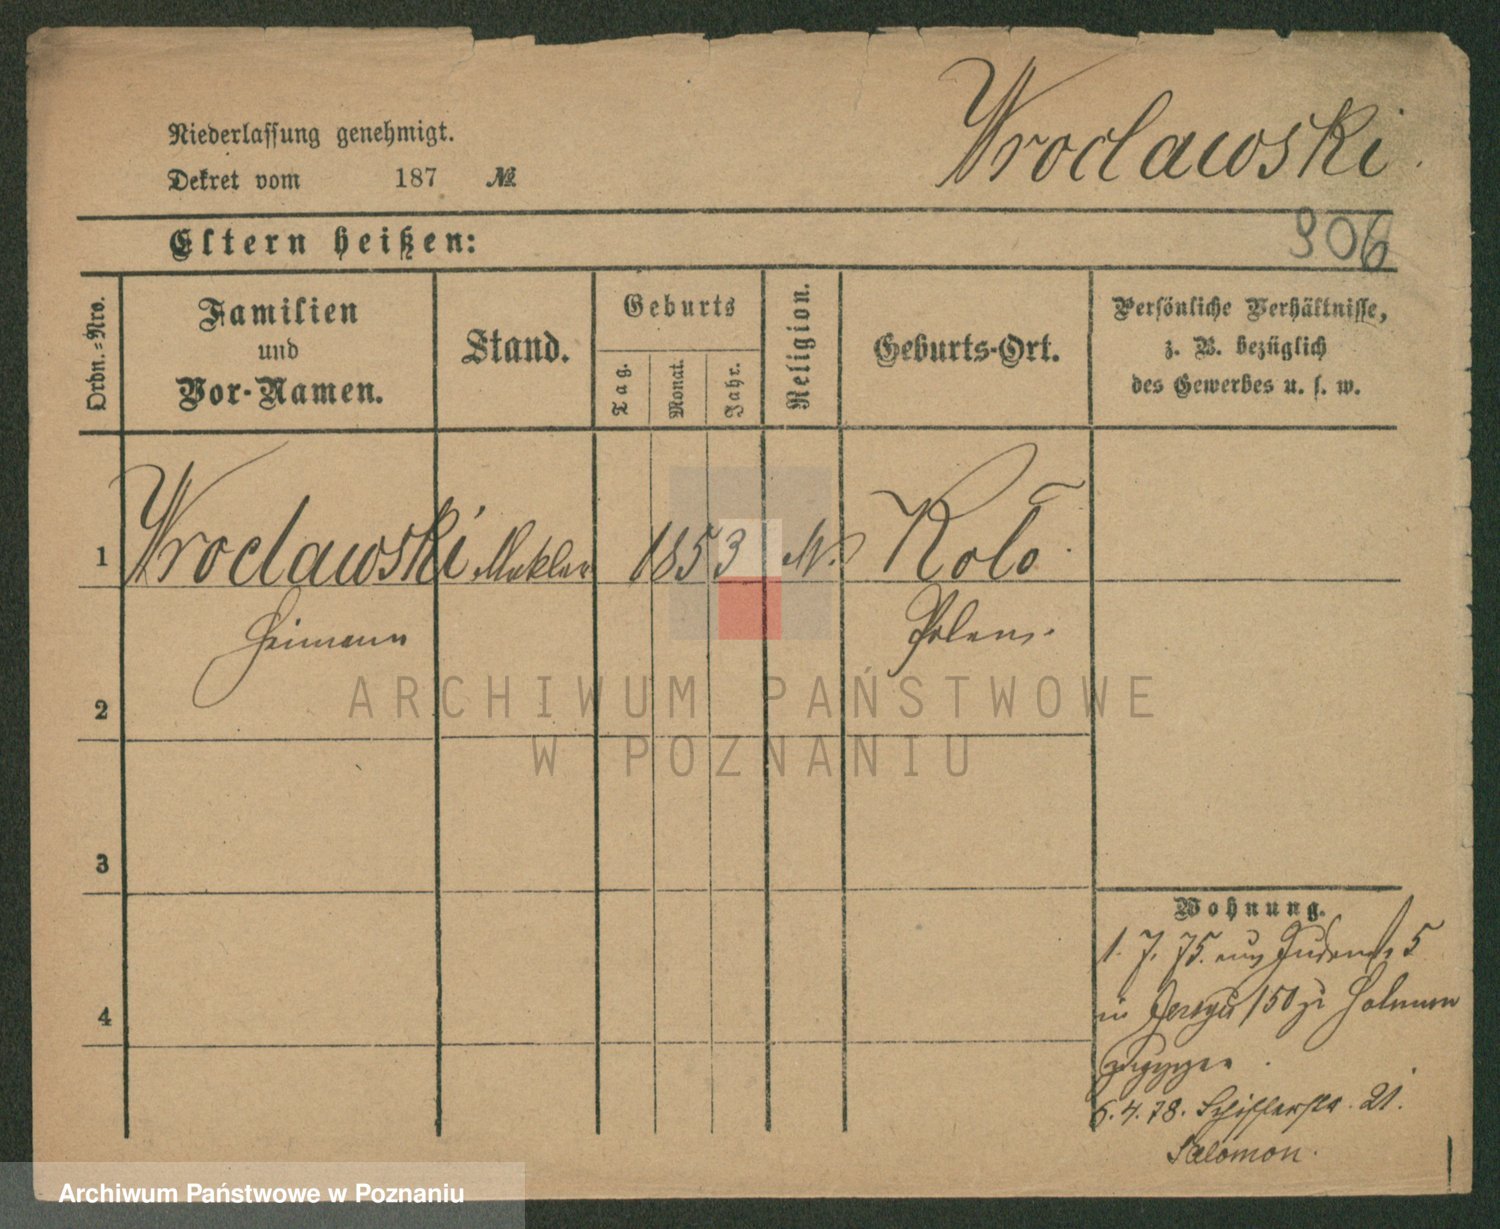 Wroclawski
Niederlassung genehmigt.
Dekret vom 187 №
906
Eltern heißen:
Ordn.-Nro.
Familien
und
Vor-Namen.
Stand.
Geburts
Tag.
Monat.
Jahr.
Religion.
Geburts-Ort.
Persönliche Verhältnisse,
z. B. bezüglich
des Gewerbes u. s. w.
1 Wroclawski Makler 1853 M. Kolo
Heimann Polen.
2
ARCHIWUM PAŃSTWOWE
W POZNANIU
3
Wohnung.
1. 7. 75. aus Judenstr 5
4
in 150 zu
zugezogen
5. 4. 78. Schifferstr. 21.
Salomon.
Archiwum Państwowe w Poznaniu